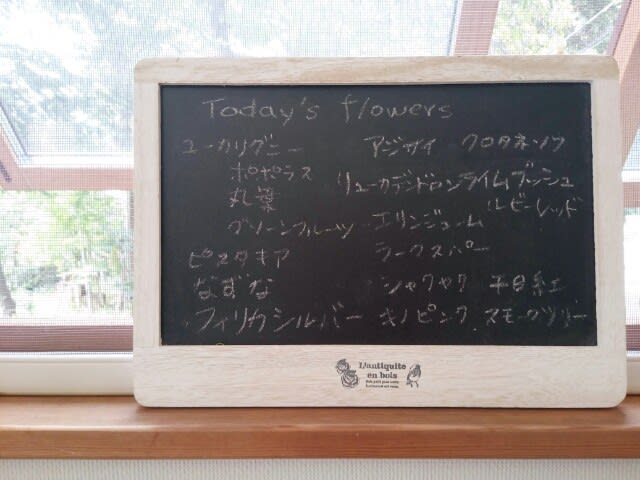 Today's flowers
ユーカリグニー
ポポラス
丸葉
グリーンフルーツ
ピスタキア
なずな
フィリカシルバー
アジサイ クロタネソウ
リューカデンドロンライムブッシュ
ルビーレッド
エリンジューム
ラークスパー
シャクヤク 千日紅
キノピンク スモークツリー
L'antiquite
en bois